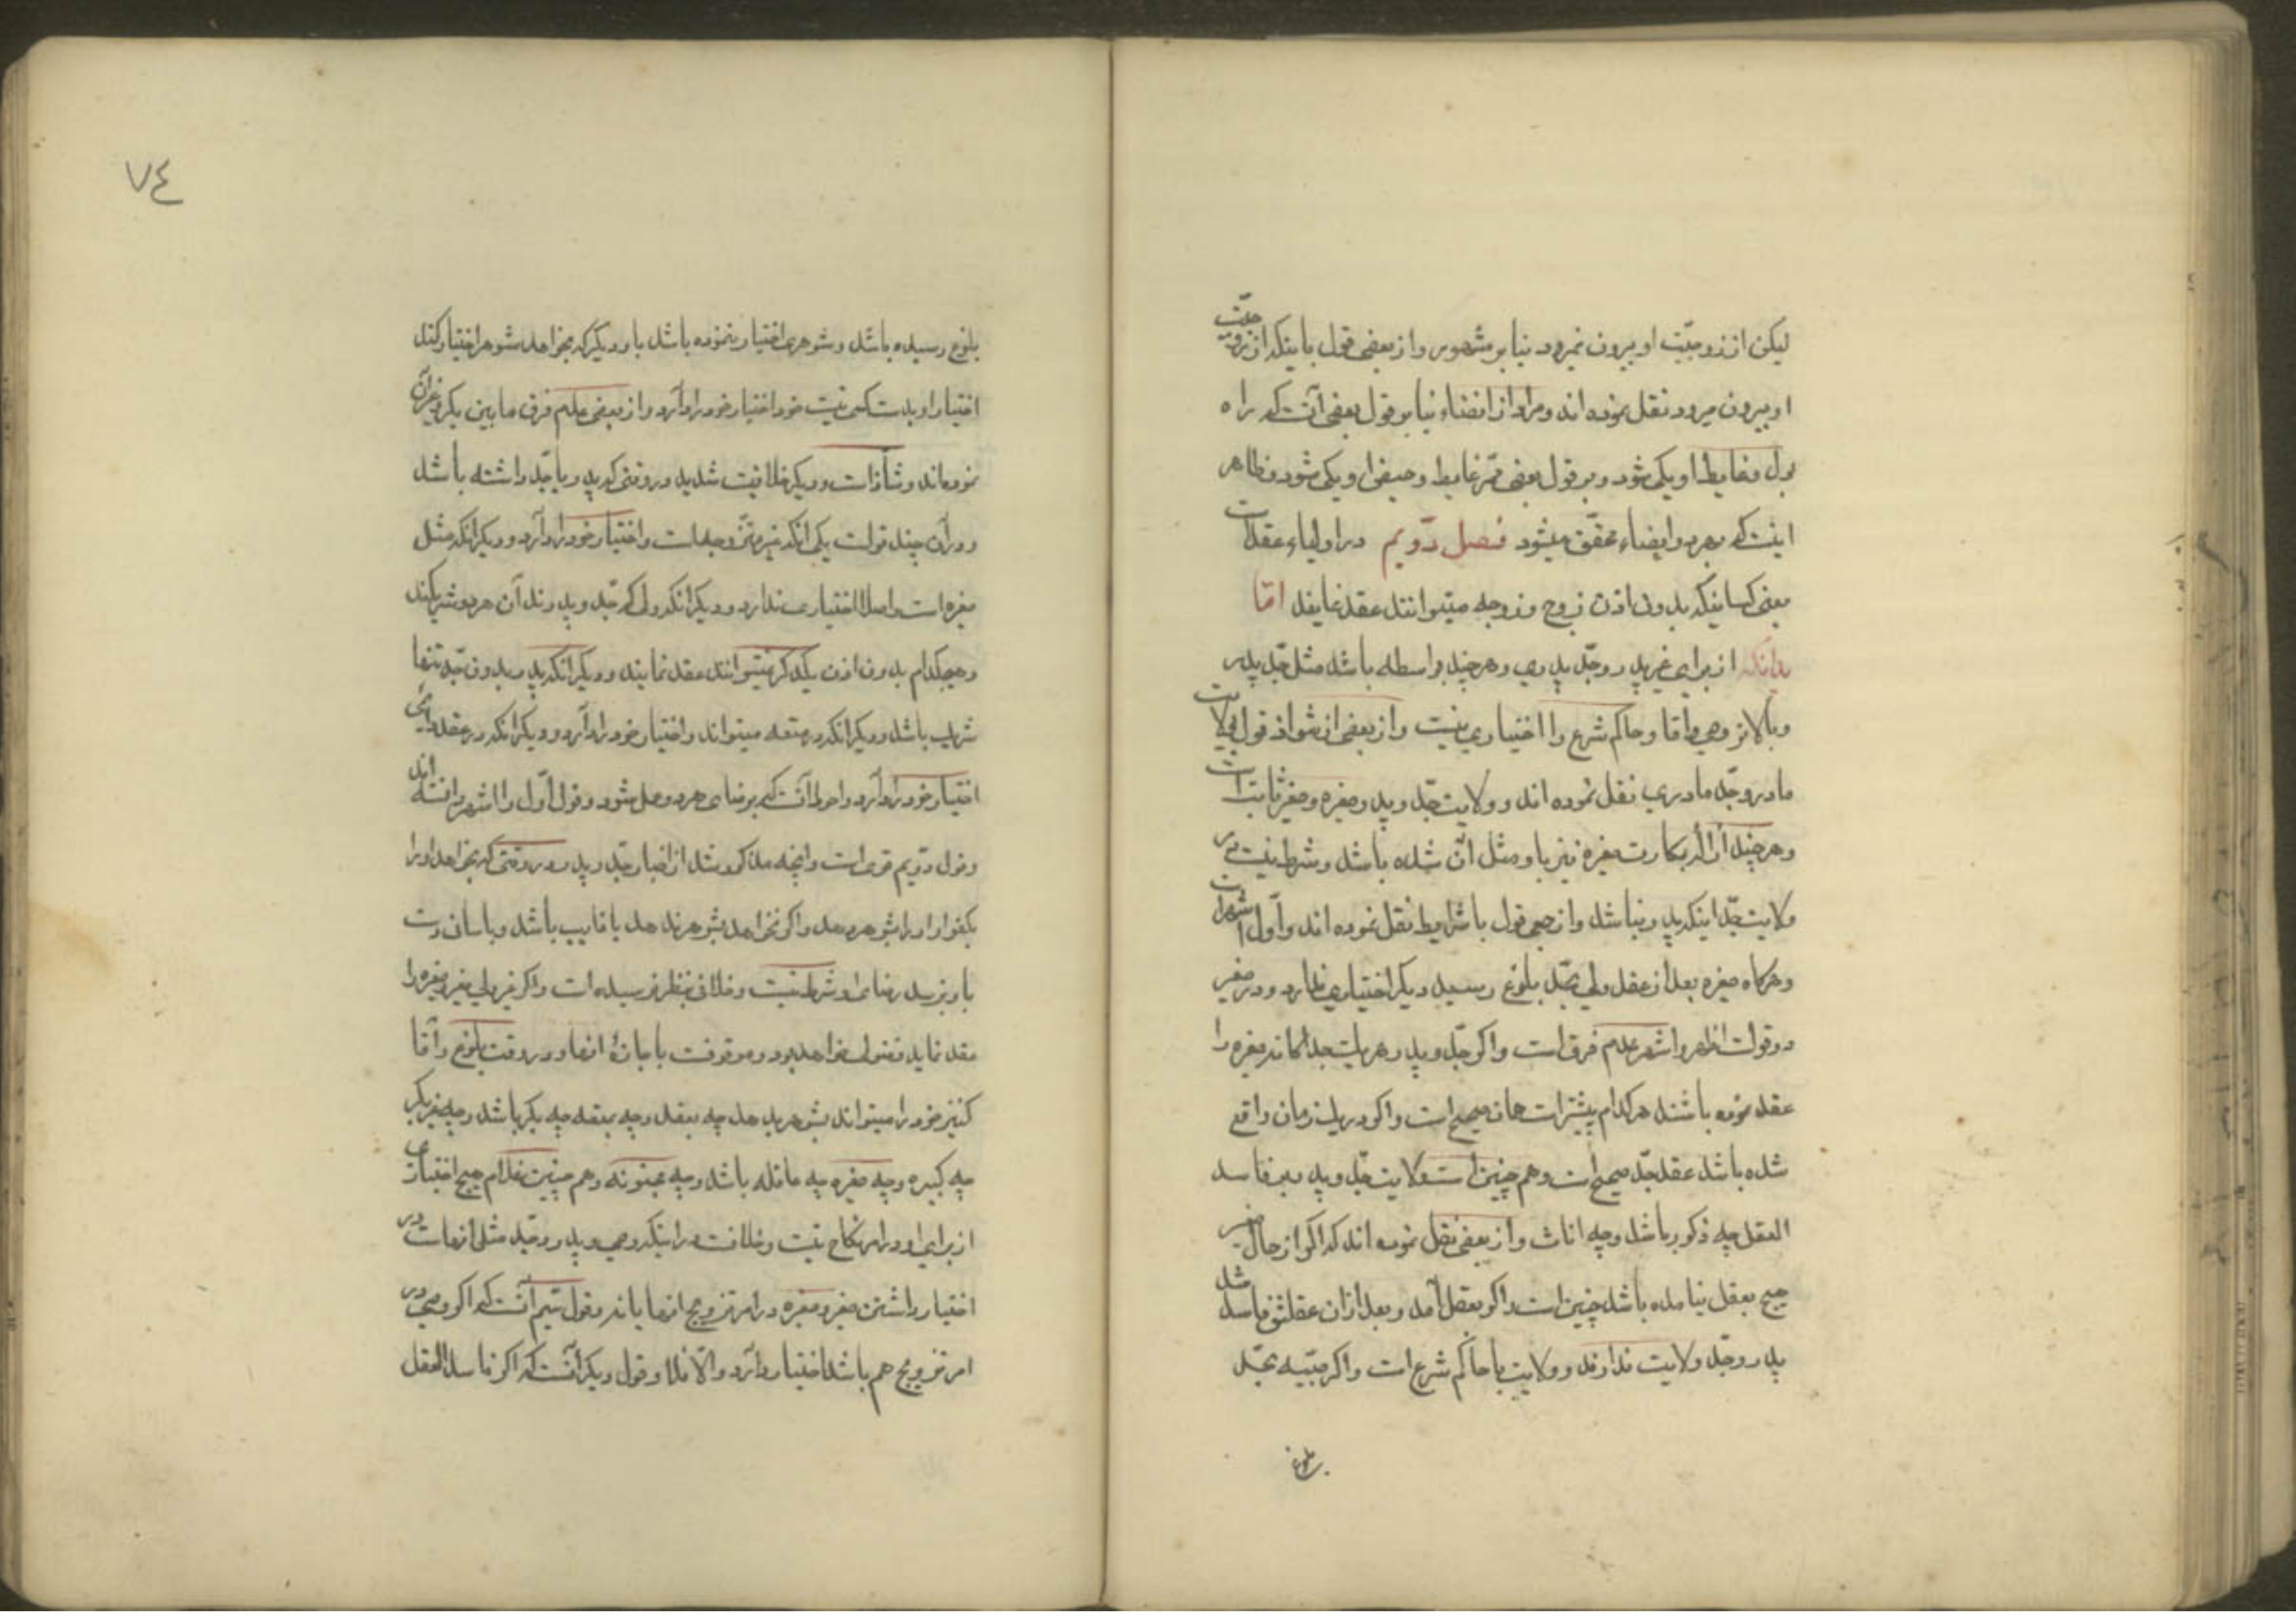 لیکن از زوجیّت او بیرون نمیرود بنا بر مشهور و از بعضی قول باینکه از زوجیّت
او بیرون میرود نقل نموده اند و مراد از افضاء بنا بر قول بعضی آنست که راه
بول و غایط او یکی شود و بر قول بعضی ممرّ غایط و حیض او یکی شود و ظاهر
اینست که بهر دو افضاء محقّق میشود فصل دوّیم در اولیاء عقد است
یعنی کسانیکه بدون اذن زوج و زوجه میتوانند عقد نمایند امّا
بدانکه از برای غیر پدر و جدّ پدری و هر چند بواسطه باشد مثل جدّ پدر
و بالاتر و وصی و آقا و حاکم شرع را اختیاری نیست و از بعضی از شواذ قول بولایت
مادر و جدّ مادری نقل نموده اند و ولایت جدّ و پدر و صغیره و صغیر ثابتست
و هر چند ازاله بکارت صغیره نیز باو مثل آن شده باشد و شرط نیست در
ولایت جدّ اینکه پدر نباشد و از جمعی قول باشرایط نقل نموده اند و اوّل اشهر است
و هرگاه صغیره بعد از عقد ولی بحدّ بلوغ رسید دیگر اختیاری ندارد و در صغیر
دو قولست اظهر و اشهر عدم فرق است و اکر جدّ و پدر هر یک جداگانه صغیره را
عقد نموده باشند هر کدام پیشتر است همان صحیح است و اکر در یک زمان واقع
شده باشد عقد جدّ صحیح است و هم چنین است ولایت جدّ و پدر بر فاسد
العقل چه ذکور باشد و چه اناث و از بعضی نقل نموده اند که اکر از حال صغر
هیچ بعقل نیامده باشد چنین است و اکر بعقل آمد و بعد از ان عقلش فاسد شد
پدر و جدّ ولایت ندارند و ولایت با حاکم شرع است و اکر صبیّه بحدّ
بلوغ
٧٤
بلوغ رسیده باشد و شوهری اختیار ننموده باشد یا دیگر که بخواهد شوهر اختیار کند
اختیار او بدست کسی نیست خود اختیار خود را دارد و از بعضی عدم فرق ما بین بکر و غیر آن
نموده اند و شاذ است و دیگر خلافیست شدید در وقتی که پدر یا جدّ داشته باشد
و در آن چند قولست یکی آنکه غیره و اختیار خود را دارد و دیگر انکه مثل
صغیره است و اصلا اختیاری ندارد و دیگر انکه ولی که جدّ و پدرند آن هر دو شریکند
و هیچکدام بدون اذن یکدکر نمیتوانند عقد نمایند و دیگر انکه پدر بدون جدّ تنها
شریک باشد و دیگر انکه در متعه میتواند و اختیار خود را دارد و دیگر انکه در عقد دائمی
اختیار خود را دارد و احوط آنست که برضای هر دو عمل شود و قول اوّل را اشهر دانسته اند
و قول دوّیم قوی است و انچه مذکور شد از اختیار جدّ و پدر در وقتی که بخواهد او را
بکفو او او را بشوهر دهد و اکر نخواهد بشوهر ندهد یا غایب باشد و باسانی دست
باو نرسد رضای او شرط نیست و خلافی بنظر نرسیده است و اکر غیر ولی صغیر و صغیره را
عقد نماید فضولی خواهد بود و موقوفست باجازهٔ انها در وقت بلوغ و آقا
کنیز خود را میتواند بشوهر بدهد چه بعقد و چه بمتعه چه بکر باشد و چه غیر بکر
چه کبیره و چه صغیره چه عاقله باشد و چه مجنونه و هم چنین غلام هیچ اختیاری
از برای او در امر نکاح نیست و خلافست در اینکه وصی و پدر و جدّ مثل انهاست در
اختیار داشتن صغیر و صغیره در امر تزویج انها یا نه و قول سیّم آنست که اکر وصی در
امر تزویج هم باشد اختیار دارد و الّا فلا و قول دیگر آنست که اکر فاسد العقل